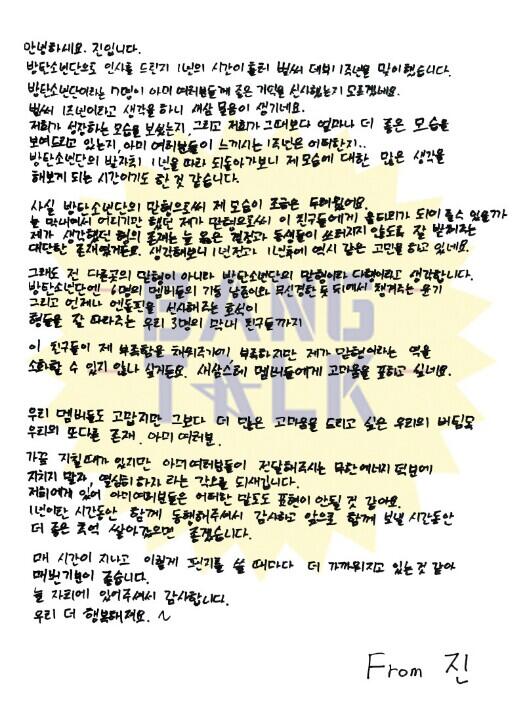 안녕하세요. 진입니다.
방탄소년단으로 인사를 드린지 1년의 시간이 흘러 벌써 데뷔 1주년을 맞이했습니다.
방탄소년단이라는 7명이 아미 여러분들께 좋은 기억을 선사했는지 모르겠네요.
벌써 1주년이라고 생각을 하니 새삼 물음이 생기네요.
저희가 성장하는 모습을 보셨는지, 그리고 저희가 그때보다 얼마나 더 좋은 모습을
보여드리고 있는지, 아미 여러분들이 느끼시는 1주년은 어떠한지..
방탄소년단의 발자취 1년을 따라 되돌아가보니 제 모습에 대한 많은 생각을
해보게 되는 시간이기도 한 것 같습니다.
사실 방탄소년단의 맏형으로써 제 모습이 조금은 두려웠어요.
늘 막내여서 어리기만 했던 제가 맏형으로써 이 친구들에게 울타리가 되어 줄수 있을까
제가 생각했던 형의 존재는 늘 옳은 결정과 동생들이 쓰러지지 않도록 잘 받쳐주는
대단한 존재였거든요. 생각해보니 1년전과 1년후에 역시 같은 고민을 하고 있네요.
그래도 전 다른곳의 맏형이 아니라 방탄소년단의 맏형이라 다행이라고 생각합니다.
방탄소년단엔 6명의 멤버들의 기둥 남준이와 무심경한 듯 뒤에서 챙겨주는 윤기
그리고 언제나 엔돌핀을 선사해주는 호석이
형들을 잘 따라주는 우리 3명의 막내 친구들까지
이 친구들이 제 부족함을 채워주기에, 부족하지만 제가 맏형이라는 역을
소화할 수 있지 않나 싶거든요. 새삼스레 멤버들에게 고마움을 표하고 싶네요.
BANG
TALK
우리 멤버들도 고맙지만 그보다 더 많은 고마움을 드리고 싶은 우리의 버팀목
우리의 또다른 존재. 아미 여러분.
가끔 지칠때가 있지만 아미여러분들이 전달해주시는 무한에너지 덕분에
지치지 말자, 열심히 하자 라는 각오를 되새깁니다.
저희에게 있어 아미여러분들은 어떠한 말로도 표현이 안될 것 같아요.
1년이란 시간동안 함께 동행해주셔서 감사하고 앞으로 함께 보낼 시간동안
더 좋은 추억 쌓아갔으면 좋겠습니다.
매 시간이 지나고 이렇게 편지를 쓸 때마다 더 가까워지고 있는것 같아
매번기분이 좋습니다.
늘 자리에 있어주셔서 감사합니다.
우리 더 행복해져요. ~
From 진